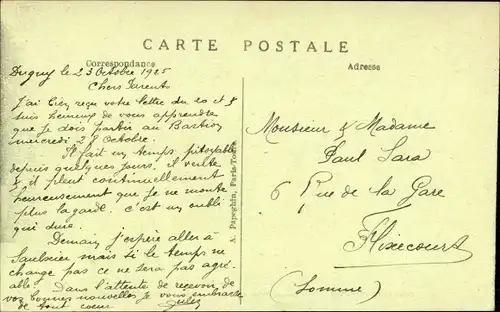 CARTE POSTALE
Correspondance
Adresse
Dugny le 23 Octobre 1925
Chers Parents
J'ai bien reçu votre lettre du 20 et je
suis heureux de vous apprendre
que je dois partir au Bastion
mercredi 28 Octobre.
Il fait un temps pitoyable
depuis quelques jours, il vente
& il pleut continuellement
heureusement que je ne monte
plus la garde. c'est un oubli
qui dure.
Demain j'espère aller à
Saulxier mais si le temps ne
change pas ce ne sera pas agré-
able. Dans l'attente de recevoir de
vos bonnes nouvelles je vous embrasse
de tout coeur
A. Papeghin, Paris-Tours
Monsieur & Madame
Paul Sara
6 Rue de la Gare
Flixecourt
(Somme)